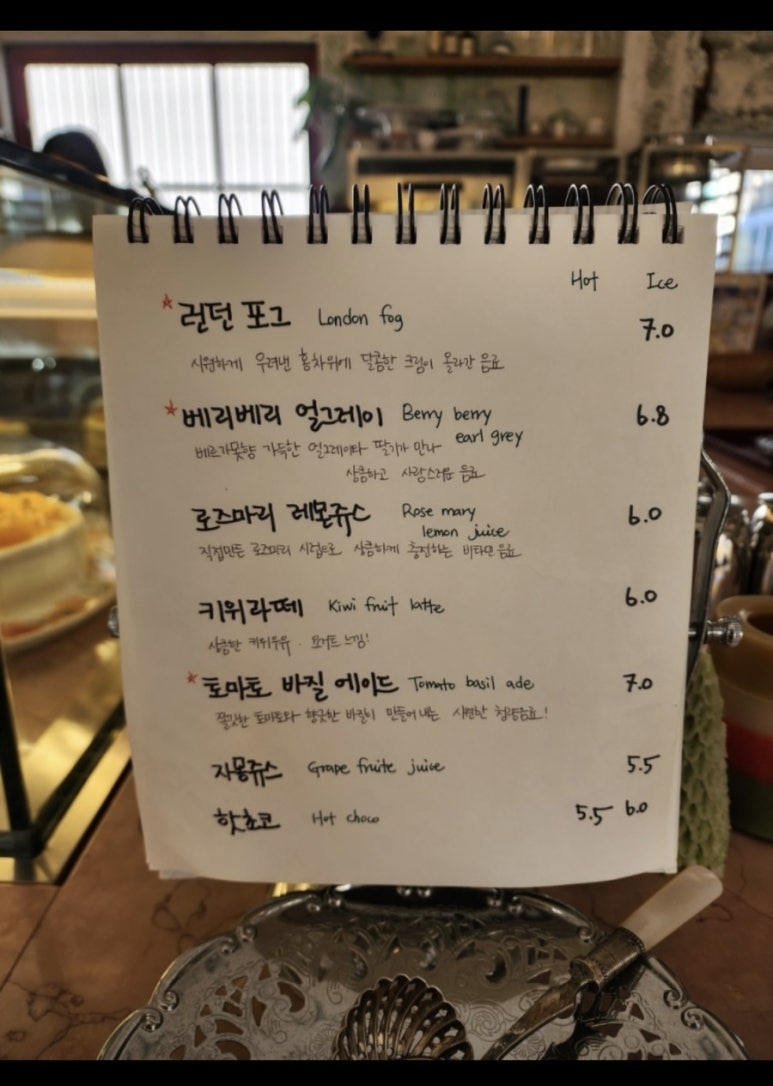 Hot Ice
런던 포그 London fog 7.0
시원하게 우려낸 홍차위에 달콤한 크림이 올라간 음료
베리베리 얼그레이 Berry berry 6.8
earl grey
베르가못향 가득한 얼그레이와 딸기가 만나
상큼하고 사랑스러운 음료
로즈마리 레몬쥬스 Rose mary 6.0
lemon juice
직접만든 로즈마리 시럽으로 상큼하게 충전하는 비타민 음료
키위라떼 Kiwi fruit latte 6.0
상큼한 키위우유. 요거트 느낌!
토마토 바질 에이드 Tomato basil ade 7.0
쫄깃한 토마토와 향긋한 바질이 만들어내는 시원한 청량음료!
자몽쥬스 Grape fruite juice 5.5
핫초코 Hot choco 5.5 6.0